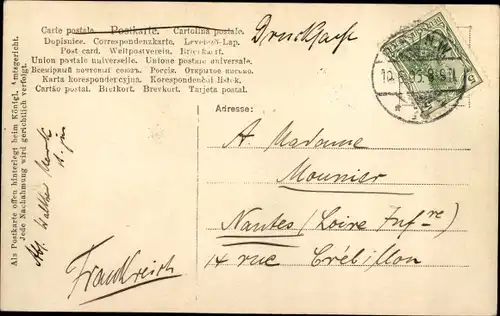 Carte postale. Postkarte. Cartolina postale.
Dopisnice. Correspondenzkarte. Levelező-Lap.
Post card. Weltpostverein. Brieτkort.
Union postale universelle. Unione postale universale.
Всемірный почтовый союзъ. Россія. Открытое письмо.
Karta korespondencyjna. Korespondenční lístek.
Cartão postal. Brefkort. Brevkort. Tarjeta postal.
Drucksache
Adresse:
A Madame
Mounier
Nantes (Loire Infre)
14 rue Crébillon
Frankreich
Als Postkarte offen hinterlegt beim Königl. Amtsgericht.
Jede Nachahmung wird gerichtlich verfolgt.
Abs. Walther